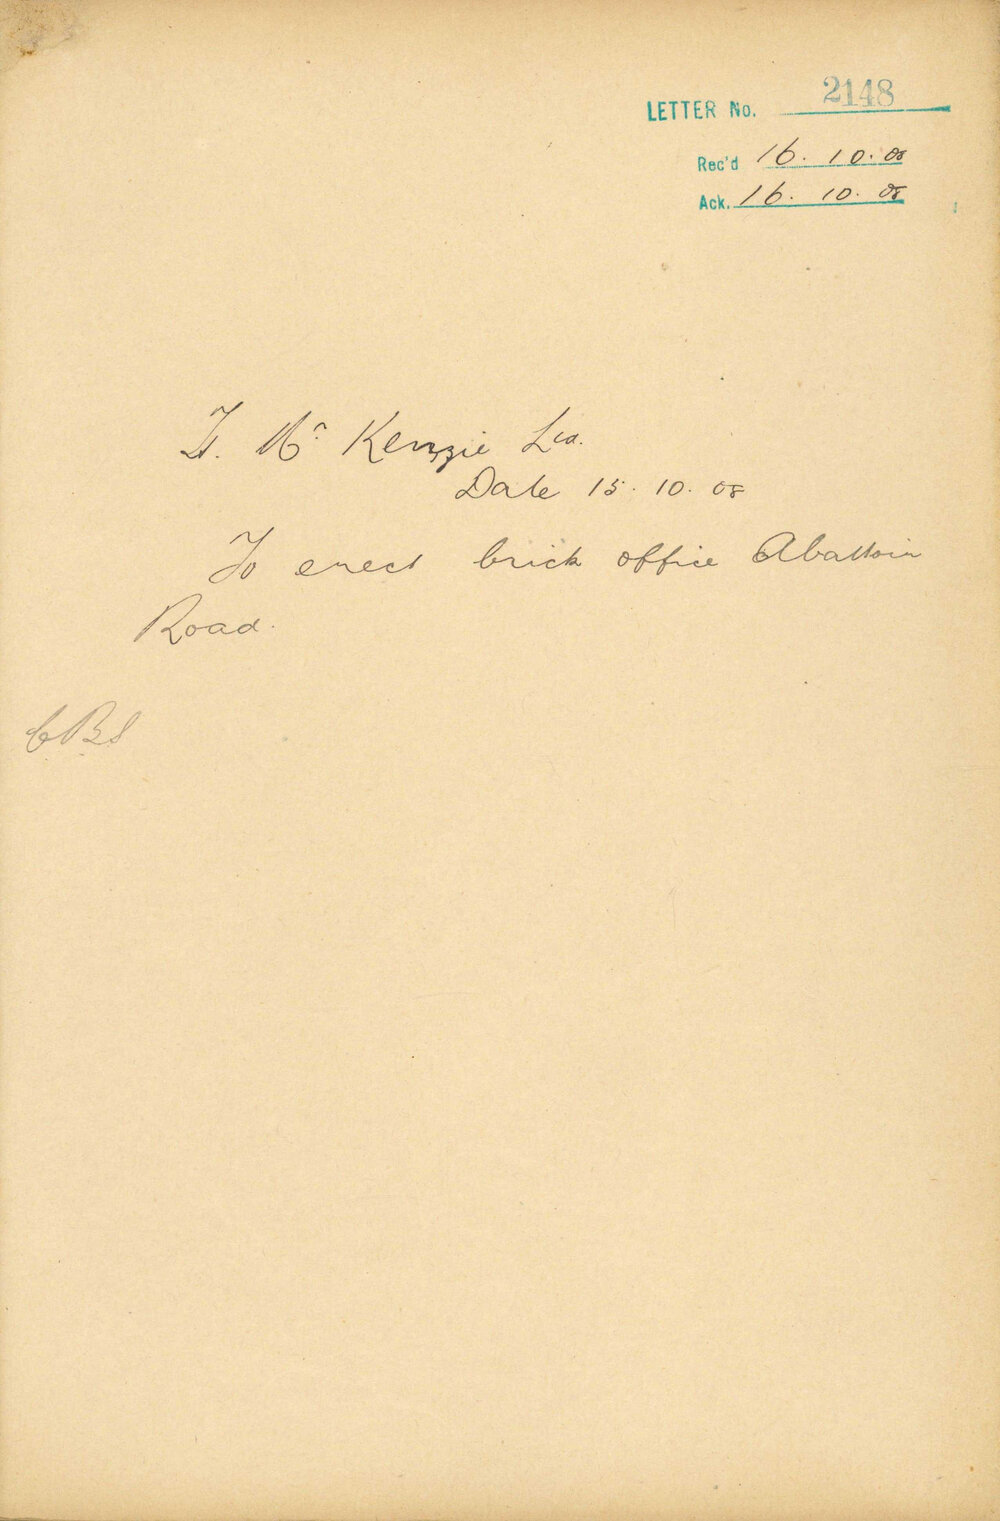 LETTER No. 2148
Rec'd 16. 10. 08
Ack. 16. 10. 08
Mc Kenzie Ltd.
Date 15. 10. 08
To erect brick office Abattoir
Road.